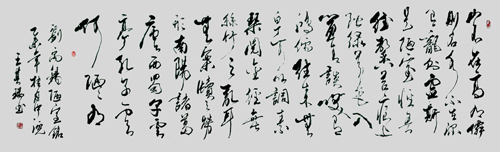 山不在高有僊
則名水不在深
有龍則靈斯
是陋室惟吾
德馨苔痕上
階綠草色入
簾青談笑有
鴻儒往來無
白丁可以調素
琴閱金經無
絲竹之亂耳
無案牘之勞
形南陽諸葛
廬西蜀子雲
亭孔子云
何陋之有
劉禹錫陋室銘
乙未年桂月中浣